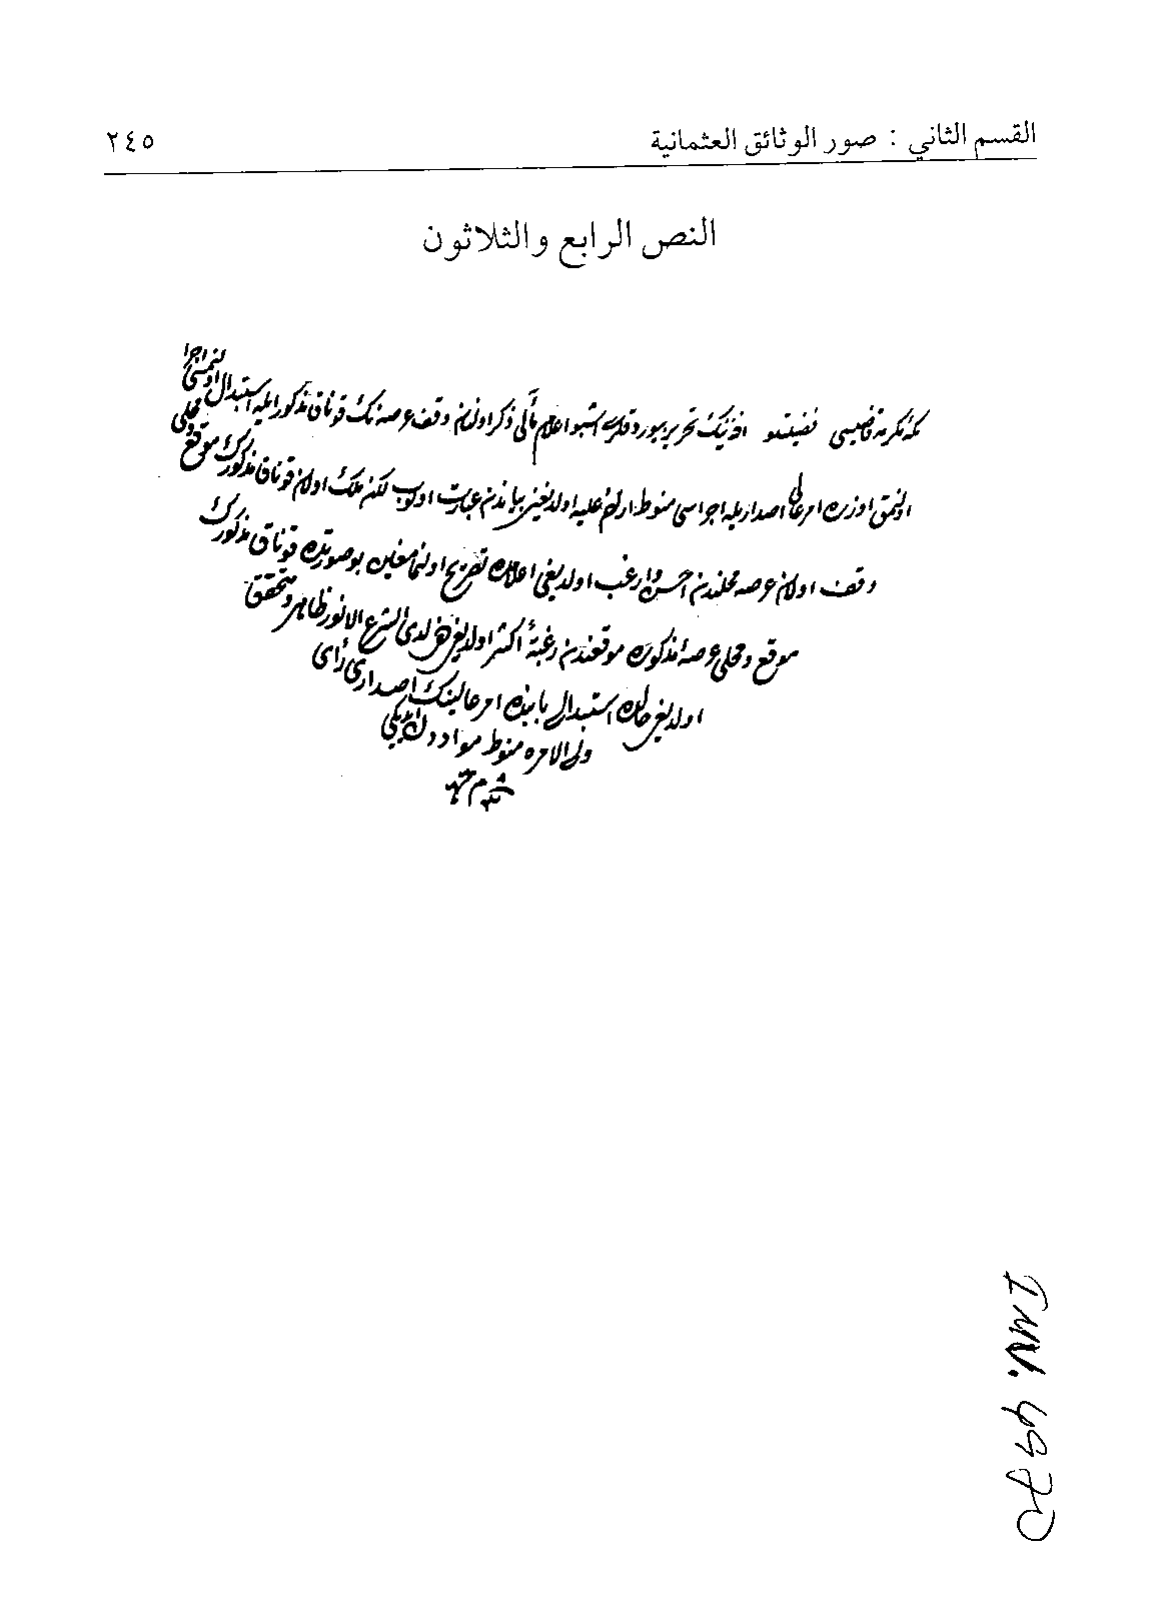 القسم الثاني : صور الوثائق العثمانية ٢٤٥
النص الرابع والثلاثون
مكه مكرمه قاضيسى فضيلتلو افندينك تحرير بيوردقلرى اشبو اعلام مآلى ذكر اولنان وقف عرصه نك قوناق مذكور ايله استبدال اولنمسى اجرا
اولنمق اوزره امر عالى اصداريله اجراسى منوط اولديغنى بياندن عبارت اولوب لكن ملك اولان قوناق مذكورك موقع ومحلى
وقف اولان عرصه محلندن احسن وارغب اولديغى اعلامده تصريح اولنمامغين بو صورتده قوناق مذكورك
موقع ومحلى عرصهٔ مذكوره موقعندن رغبةً اكثر اولديغى لدى الشرع الانور ظاهر ومتحقق
اولديغى حالده استبدالى بابنده امر عالينك اصدارى رأى
ولى الامره منوط موادندن ايديكى
INV. 4970